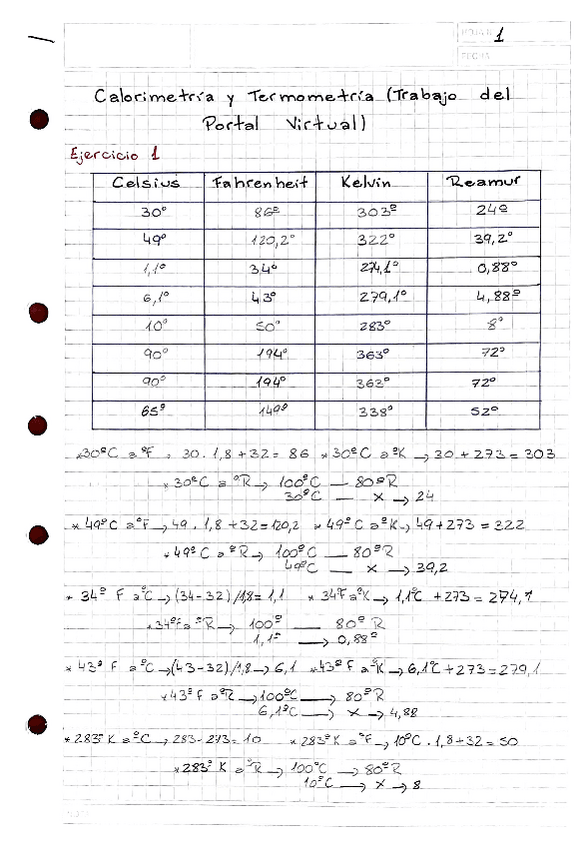 HOJA N° 1
FECHA
Calorimetría y Termometría (Trabajo del
Portal Virtual)
Ejercicio 1
Celsius Fahrenheit Kelvin Reamur
30° 86º 303º 24º
49° 120,2° 322° 39,2°
1,1° 34° 274,1° 0,88°
6,1° 43° 279,1° 4,88º
10° 50° 283° 8°
90° 194° 363° 72°
90° 194° 363° 72°
65º 149º 338° 52°
*30ºC a ºF → 30 . 1,8 + 32 = 86 *30ºC a ºK → 30 + 273 = 303
*30ºC a ºR → 100ºC — 80ºR
30ºC — x → 24
*49ºC a ºF → 49 . 1,8 + 32 = 120,2 *49ºC a ºK → 49 + 273 = 322
*49ºC a ºR → 100ºC — 80ºR
49ºC — x → 39,2
* 34º F a ºC → (34-32)/1,8 = 1,1 * 34ºF a ºK → 1,1ºC + 273 = 274,1
*34ºF a ºR → 100º — 80º R
1,1º → 0,88º
*43º F a ºC → (43-32)/1,8 → 6,1 *43º F a ºK → 6,1ºC + 273 = 279,1
*43º F a ºR → 100ºC → 80ºR
6,1ºC → x → 4,88
*283º K a ºC → 283-273 = 10 *283º K a ºF → 10ºC . 1,8 + 32 = 50
*283º K a ºR → 100ºC → 80ºR
10ºC → x → 8